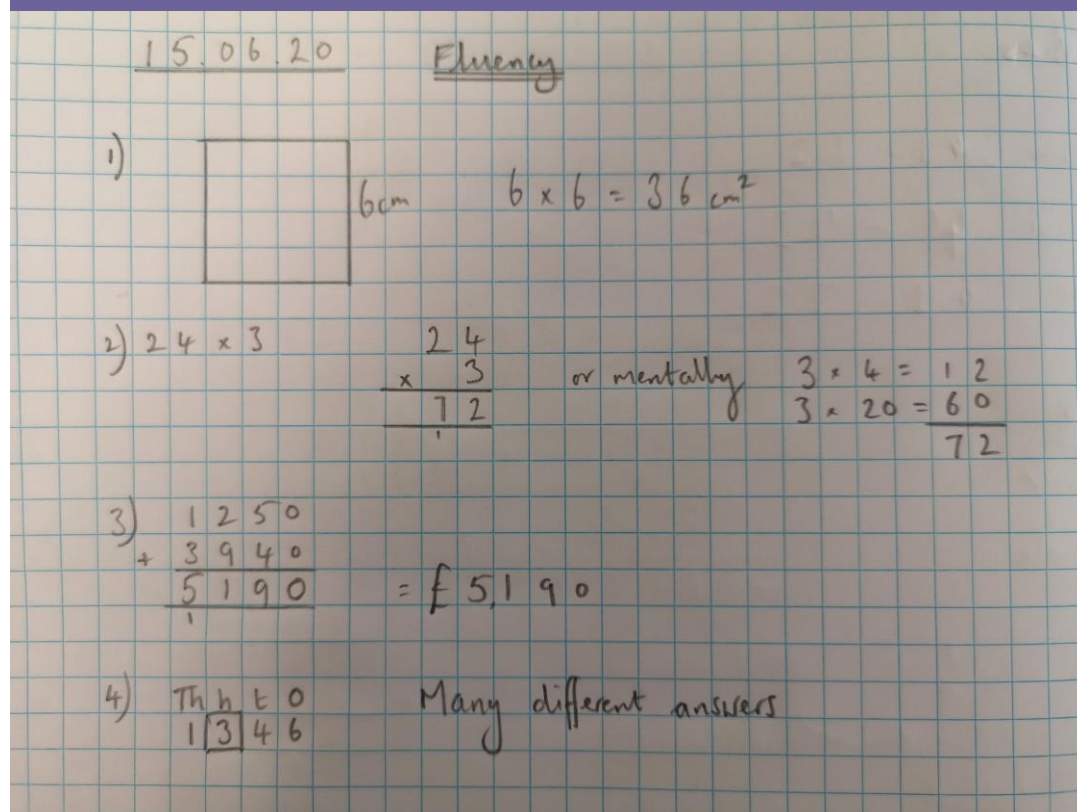 15.06.20 Fluency
1) 6cm 6 × 6 = 36 cm²
2) 24 × 3
24
× 3
72
1
or mentally
3 × 4 = 12
3 × 20 = 60
72
3) 1250
+ 3940
5190
1
= £5,190
4) Th h t 0 Many different answers
1346